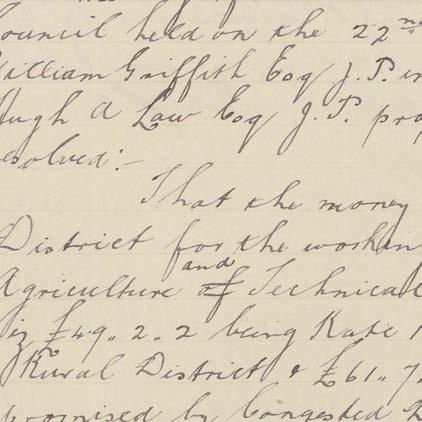 Council held on the 22nd
William Griffith Esq J.P. in
Hugh A Law Esq J.P. prop
esolved:-
That the money
District for the workin
and
Agriculture of Technical
iz £49.. 2.. 2 being Rate 1
Rural District & £61.. 7.
promised by Congested D